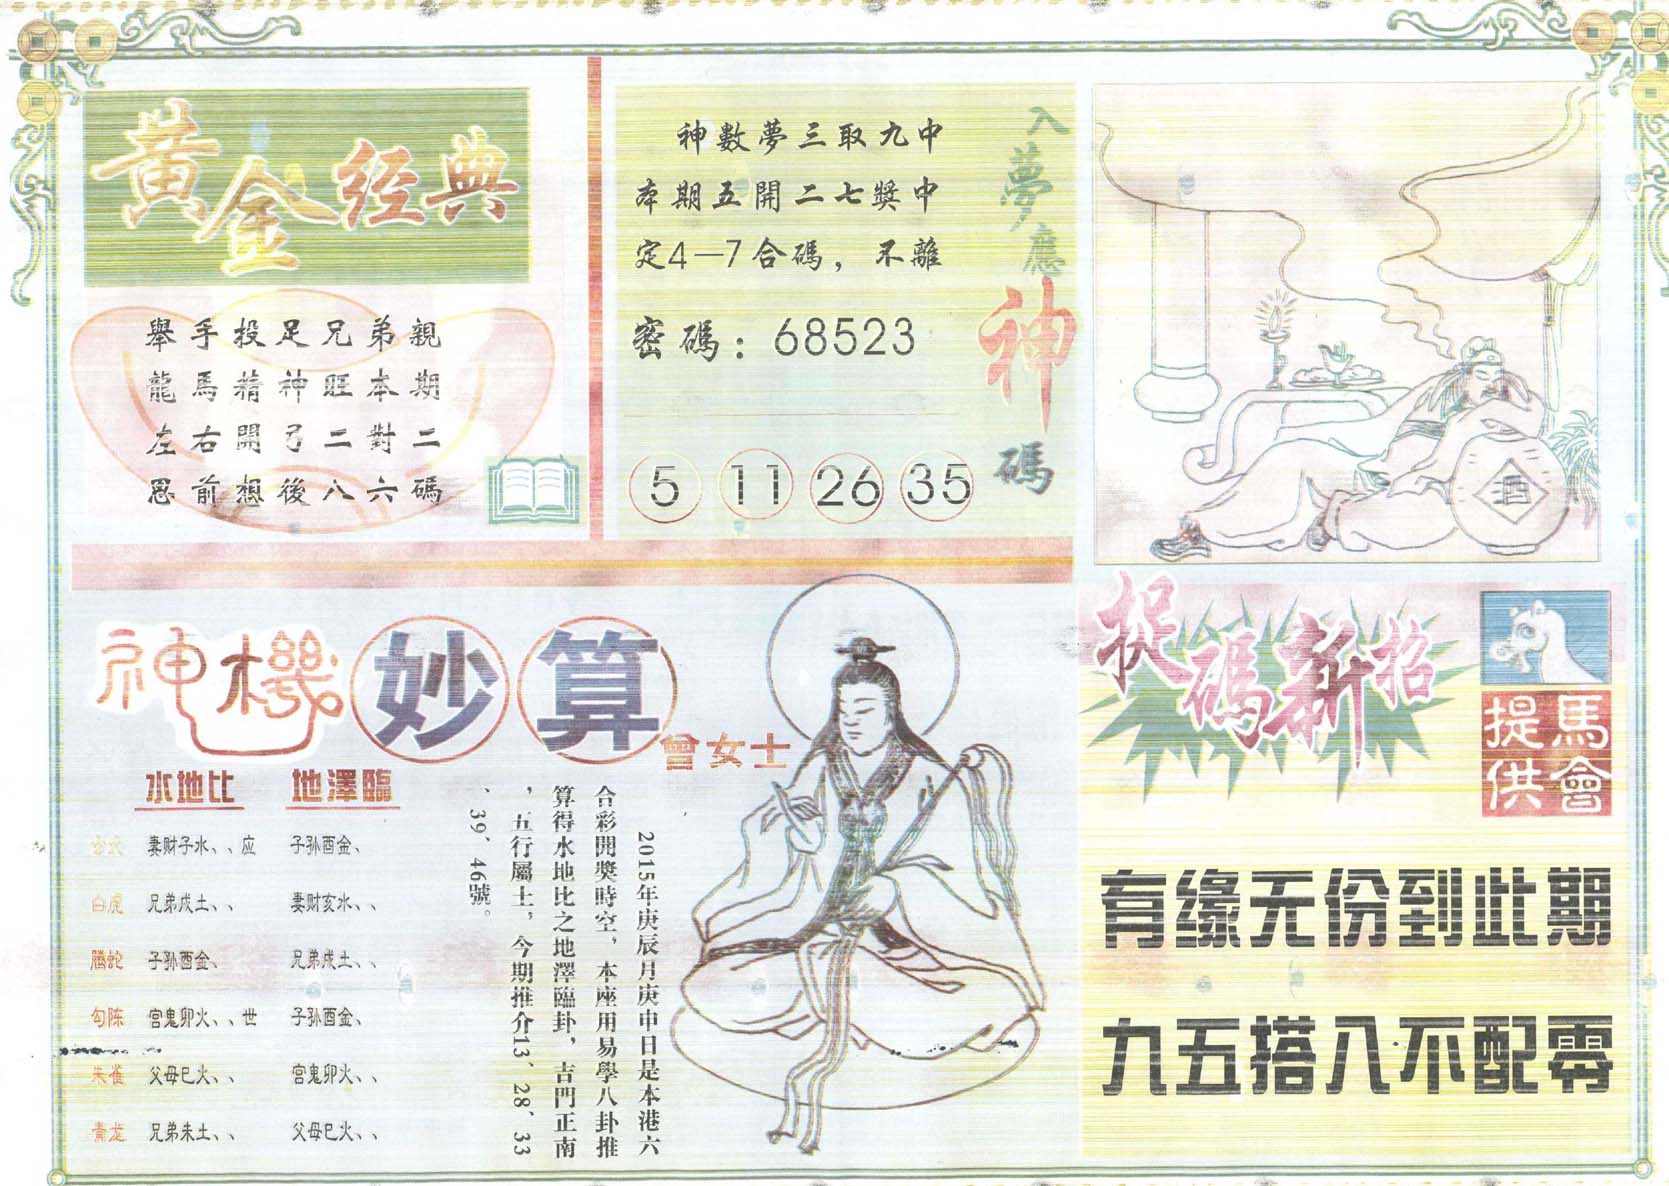 黄金经典
舉手投足兄弟親
龍馬精神旺本期
左右開弓二對二
思前想後八六碼
神數夢三取九中
本期五開二七獎中
定4—7合碼，不離
密碼：68523
5 11 26 35
入夢應神碼
酒
神機妙算
曾女士
水地比 地澤臨
妻财子水、、应 子孙酉金、
白虎 兄弟戌土、、 妻财亥水、、
腾蛇 子孙酉金、 兄弟戌土、、
勾陈 官鬼卯火、、世 子孙酉金、
朱雀 父母巳火、、 官鬼卯火、、
青龙 兄弟未土、、 父母巳火、、
2015年庚辰月庚申日是本港六
合彩開獎時空，本座用易學八卦推
算得水地比之地澤臨卦，吉門正南
，五行屬土，今期推介13、28、33
、39、46號。
捉碼新招
馬會
提供
有缘无份到此期
九五搭八不配零